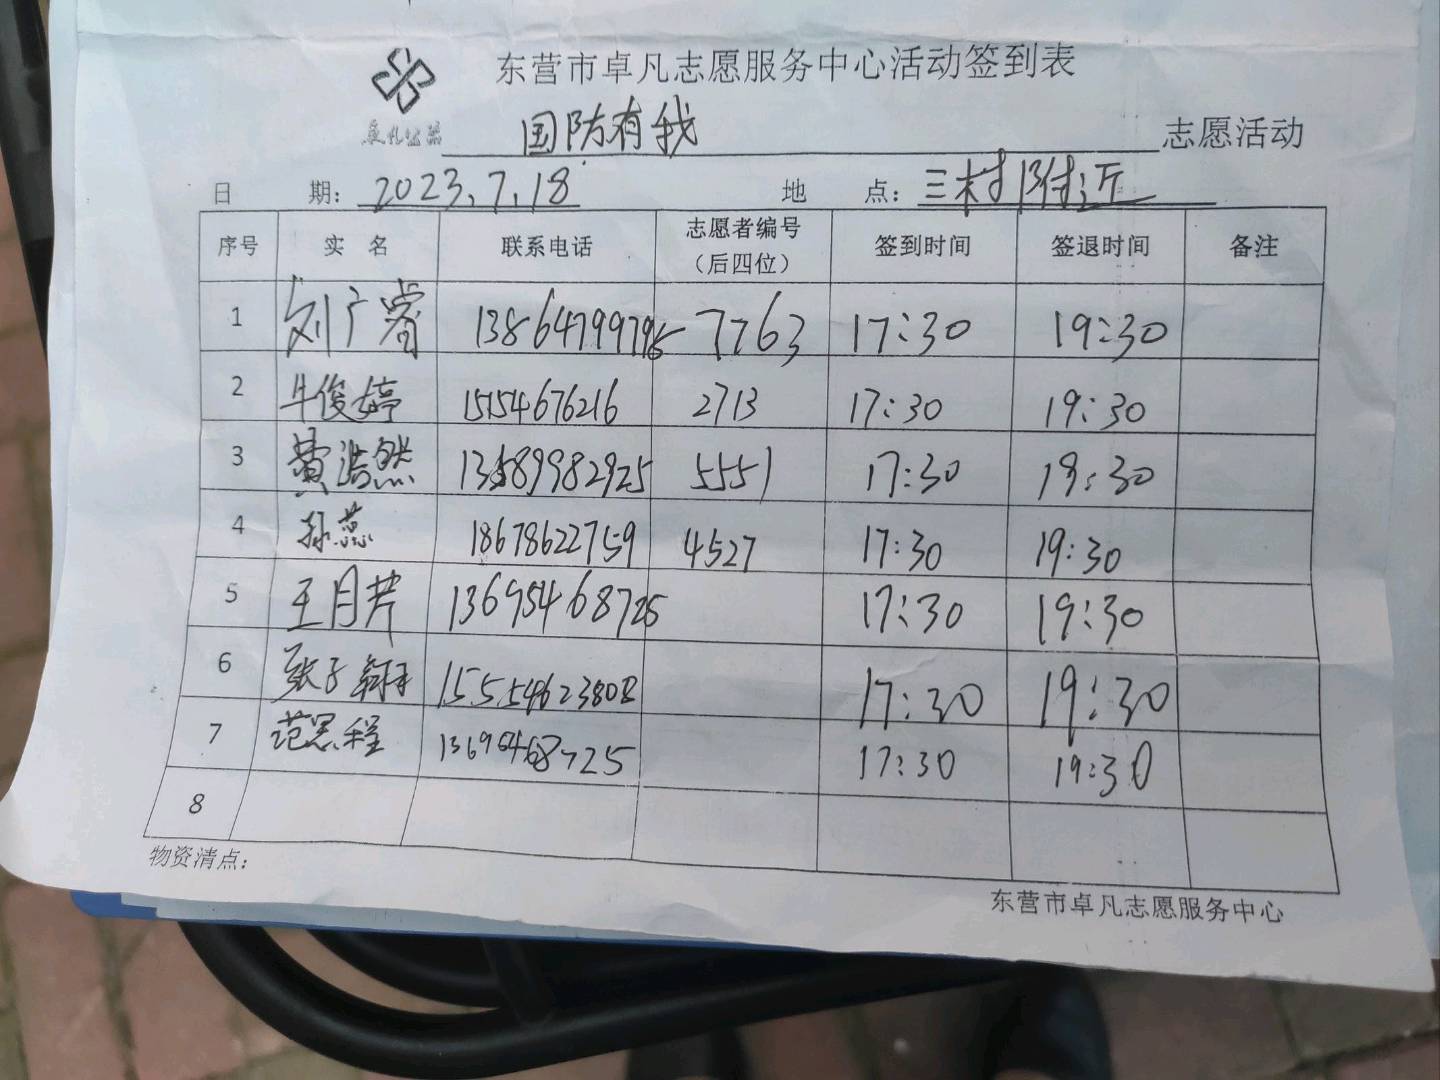 东营市卓凡志愿服务中心活动签到表
卓凡公益
国防有我 志愿活动
日 期: 2023.7.18 地 点: 三村附近
序号 实 名 联系电话 志愿者编号（后四位） 签到时间 签退时间 备注
1 刘广睿 7763 17:30 19:30
2 牛俊婷 15154676216 2713 17:30 19:30
3 黄浩然 13589982925 5551 17:30 19:30
4 孙蕊 18678622759 4527 17:30 19:30
5 王月芹 13695468725 17:30 19:30
6 张子翔 15554623808 17:30 19:30
7 范思程 13695468725 17:30 19:30
8
物资清点:
东营市卓凡志愿服务中心